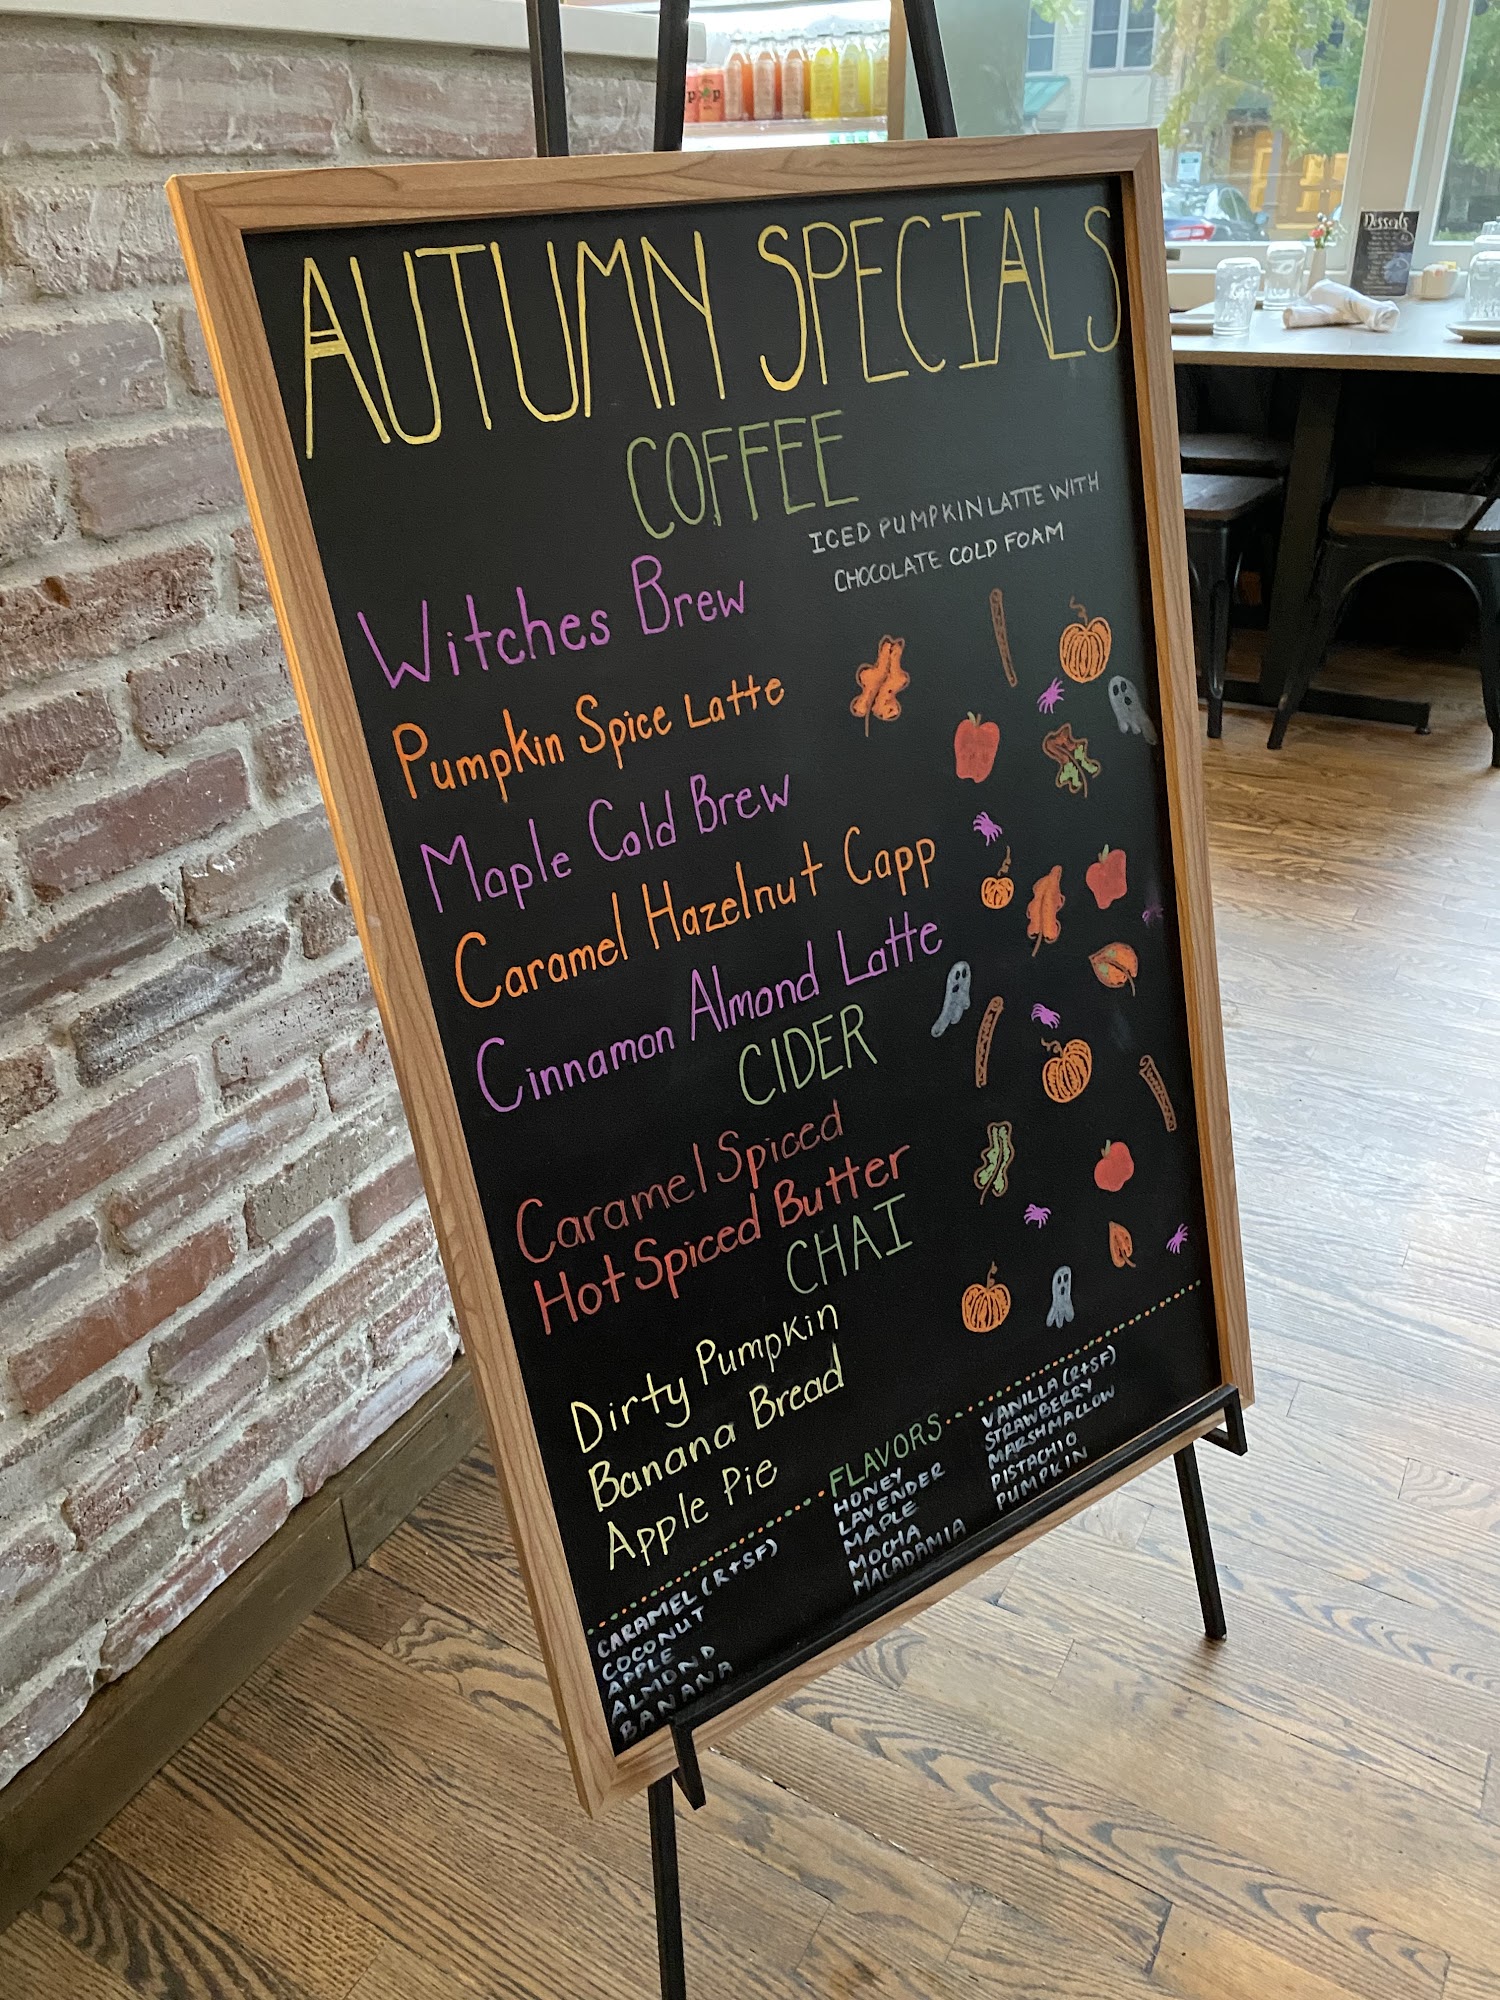 AUTUMN SPECIALS
COFFEE
Witches Brew
ICED PUMPKIN LATTE WITH
CHOCOLATE COLD FOAM
Pumpkin Spice Latte
Maple Cold Brew
Caramel Hazelnut Capp
Cinnamon Almond Latte
CIDER
Caramel Spiced
Hot Spiced Butter
CHAI
Dirty Pumpkin
Banana Bread
Apple Pie
FLAVORS
CARAMEL (R+SF)
COCONUT
APPLE
ALMOND
BANANA
HONEY
LAVENDER
MAPLE
MOCHA
MACADAMIA
VANILLA (R+SF)
STRAWBERRY
MARSHMALLOW
PISTACHIO
PUMPKIN
Desserts